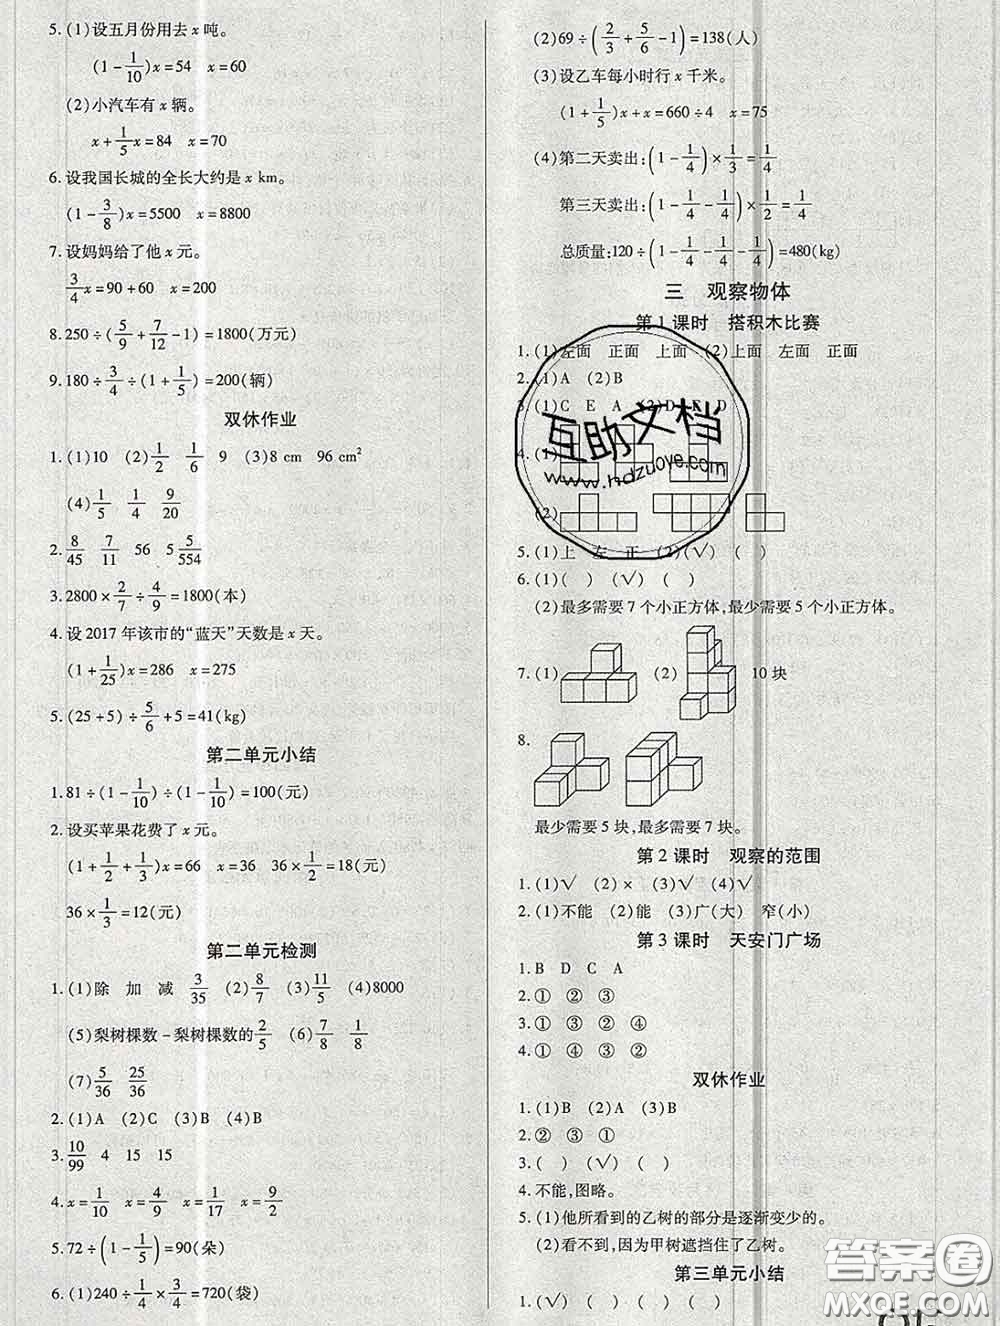 5.(1)设五月份用去x吨。
(1-1/10)x=54 x=60
(2)小汽车有x辆。
x+1/5x=84 x=70
6.设我国长城的全长大约是x km。
(1-3/8)x=5500 x=8800
7.设妈妈给了他x元。
3/4x=90+60 x=200
8.250÷(5/9+7/12-1)=1800(万元)
9.180÷3/4÷(1+1/5)=200(辆)
双休作业
1.(1)10 (2)1/2 1/6 9 (3)8 cm 96 cm²
(4)1/5 1/4 9/20
2.8/45 7/11 56 5 5/554
3.2800×2/7÷4/9=1800(本)
4.设2017年该市的“蓝天”天数是x天。
(1+1/25)x=286 x=275
5.(25+5)÷5/6+5=41(kg)
第二单元小结
1.81÷(1-1/10)÷(1-1/10)=100(元)
2.设买苹果花费了x元。
(1+1/2+1/3)x=66 x=36 36×1/2=18(元)
36×1/3=12(元)
第二单元检测
1.(1)除 加 减 3/35 (2)8/7 (3)11/5 (4)8000
(5)梨树棵数-梨树棵数的2/5 (6)7/8 1/8
(7)5/36 25/36
2.(1)A (2)C (3)B (4)B
3.10/99 4 15 15
4.x=1/10 x=4/9 x=1/17 x=9/2
5.72÷(1-1/5)=90(朵)
6.(1)240÷1/4×3/4=720(袋)
(2)69÷(2/3+5/6-1)=138(人)
(3)设乙车每小时行x千米。
(1+1/5)x+x=660÷4 x=75
(4)第二天卖出:(1-1/4)×1/3=1/4
第三天卖出:(1-1/4-1/4)×1/2=1/4
总质量:120÷(1-1/4-1/4-1/4)=480(kg)
三 观察物体
第1课时 搭积木比赛
1.(1)左面 正面 上面 (2)上面 左面 正面
2.(1)A (2)B
3.(1)C E A (2)D E D
4.(1)
(2)
5.(1)上 左 正 (2)(√) ( )
6.(1)( ) (√) ( )
(2)最多需要7个小正方体,最少需要5个小正方体。
7.(1) (2) 10块
8.
最少需要5块,最多需要7块。
第2课时 观察的范围
1.(1)√ (2)× (3)√ (4)√
2.(1)不能 (2)能 (3)广(大) 窄(小)
第3课时 天安门广场
1.B D C A
2.① ② ③
3.① ③ ② ④
4.① ② ③ ④
双休作业
1.(1)B (2)A (3)B
2.② ③ ①
3.( ) (√) ( )
4.不能,图略。
5.(1)他所看到的乙树的部分是逐渐变少的。
(2)看不到,因为甲树遮挡住了乙树。
第三单元小结
1.(√) ( ) ( ) ( )
互助文档
www.hdzuoye.com
答案圈
MXQE.COM